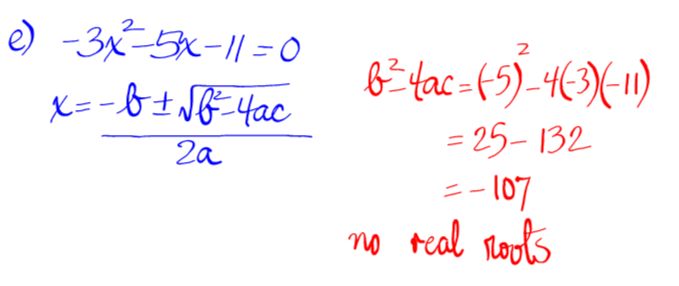 e) -3x²-5x-11=0
x = -b ± √b²-4ac
2a
b²-4ac = (-5)²-4(-3)(-11)
= 25 - 132
= -107
no real roots